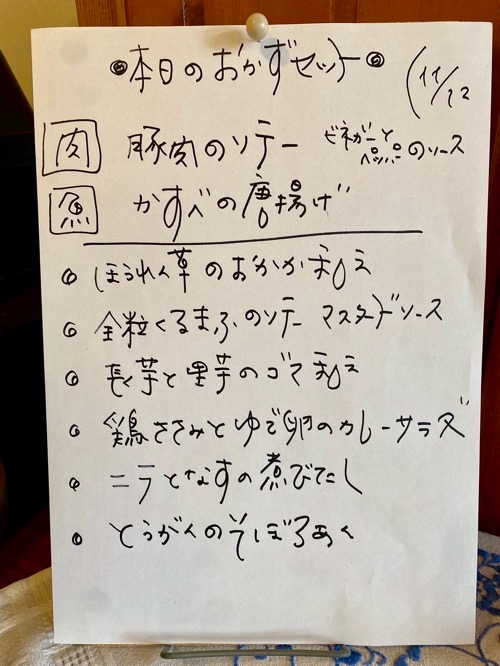 ◎本日のおかずセット◎ (11/12
肉 豚肉のソテー ビネガーとペッパーのソース
魚 かすべの唐揚げ
・ほうれん草のおかか和え
・全粒くるまふのソテー マスタードソース
・長芋と里芋のゴマ和え
・鶏ささみとゆで卵のカレーサラダ
・ニラとなすの煮びたし
・とうがんのそぼろあん